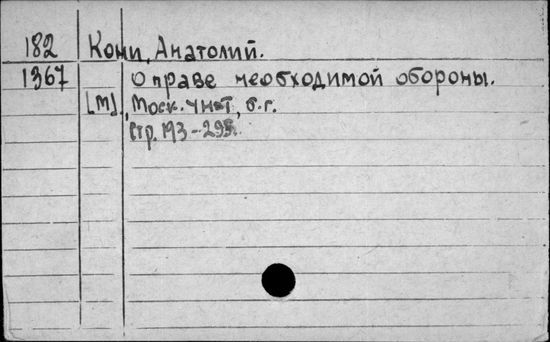 182 Кони, Анатолий.
1367 О праве необходимой обороны.
[М]., Моск. унив., б.г.
Стр. 193-295.